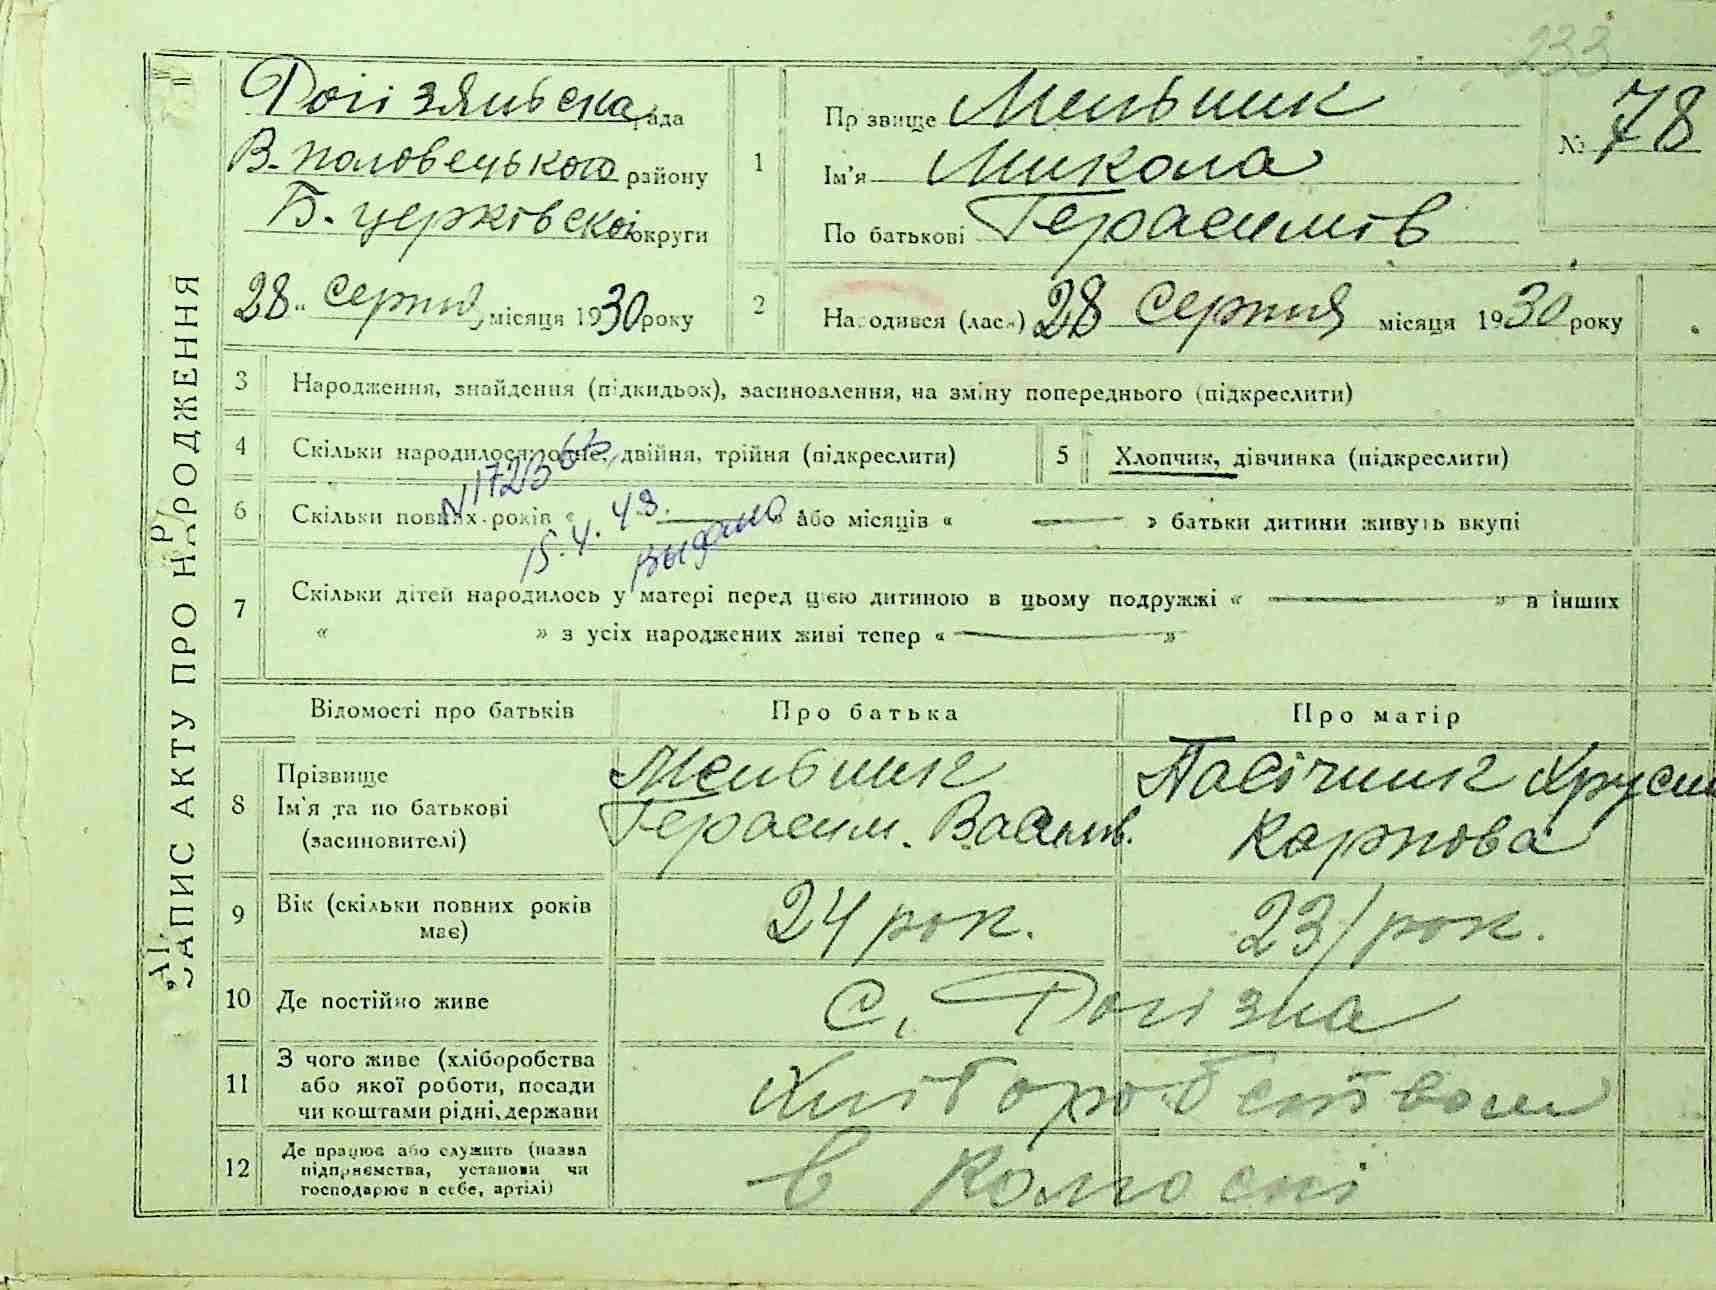 233
ЗАПИС АКТУ ПРО НАРОДЖЕННЯ
Рогізнянська рада
В-половецького району
Б-церківської округи
28 серпня місяця 1930 року
1
Прізвище Мельник
Ім'я Микола
По батькові Герасимів
№ 78
2 Народився (лась) 28 серпня місяця 1930 року
3 Народження, знайдення (підкидьок), засиновлення, на зміну попереднього (підкреслити)
4 Скільки народилося: одне, двійня, трійня (підкреслити)
5 Хлопчик, дівчинка (підкреслити)
6 Скільки повних років « » або місяців « » батьки дитини живуть вкупі
15.4.43. выдано
7 Скільки дітей народилось у матері перед цією дитиною в цьому подружжі « » в інших
« » з усіх народжених живі тепер « »
Відомості про батьків Про батька Про матір
8 Прізвище
Ім'я та по батькові
(засиновителі)
Мельник
Герасим. Васильів.
Пасічник
Карпова
9 Вік (скільки повних років
має)
24 рок. 23 рок.
10 Де постійно живе с. Рогізна
11 З чого живе (хліборобства
або якої роботи, посади
чи коштами рідні, держави
Хліборобством
12 Де працює або служить (назва
підприємства, установи чи
господарює в себе, артілі)
в колгоспі